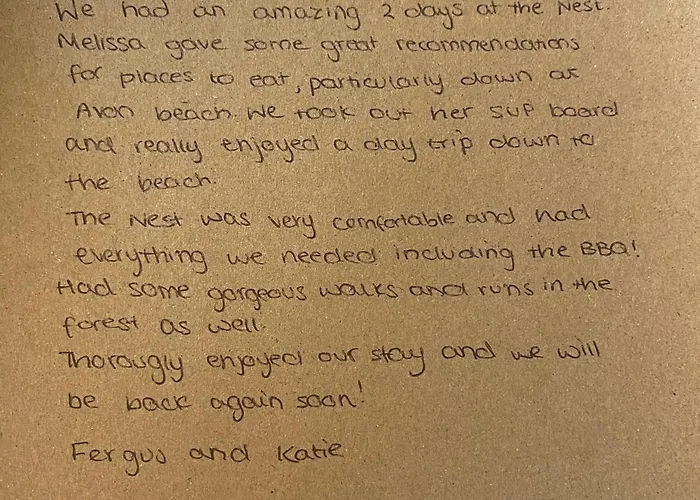 We had an amazing 2 days at the Nest.
Melissa gave some great recommendations
for places to eat, particularly down at
Avon beach. We took out her SUP board
and really enjoyed a day trip down to
the beach.
The Nest was very comfortable and had
everything we needed including the BBQ!
Had some gorgeous walks and runs in the
forest as well.
Thorougly enjoyed our stay and we will
be back again soon!
Fergus and Katie